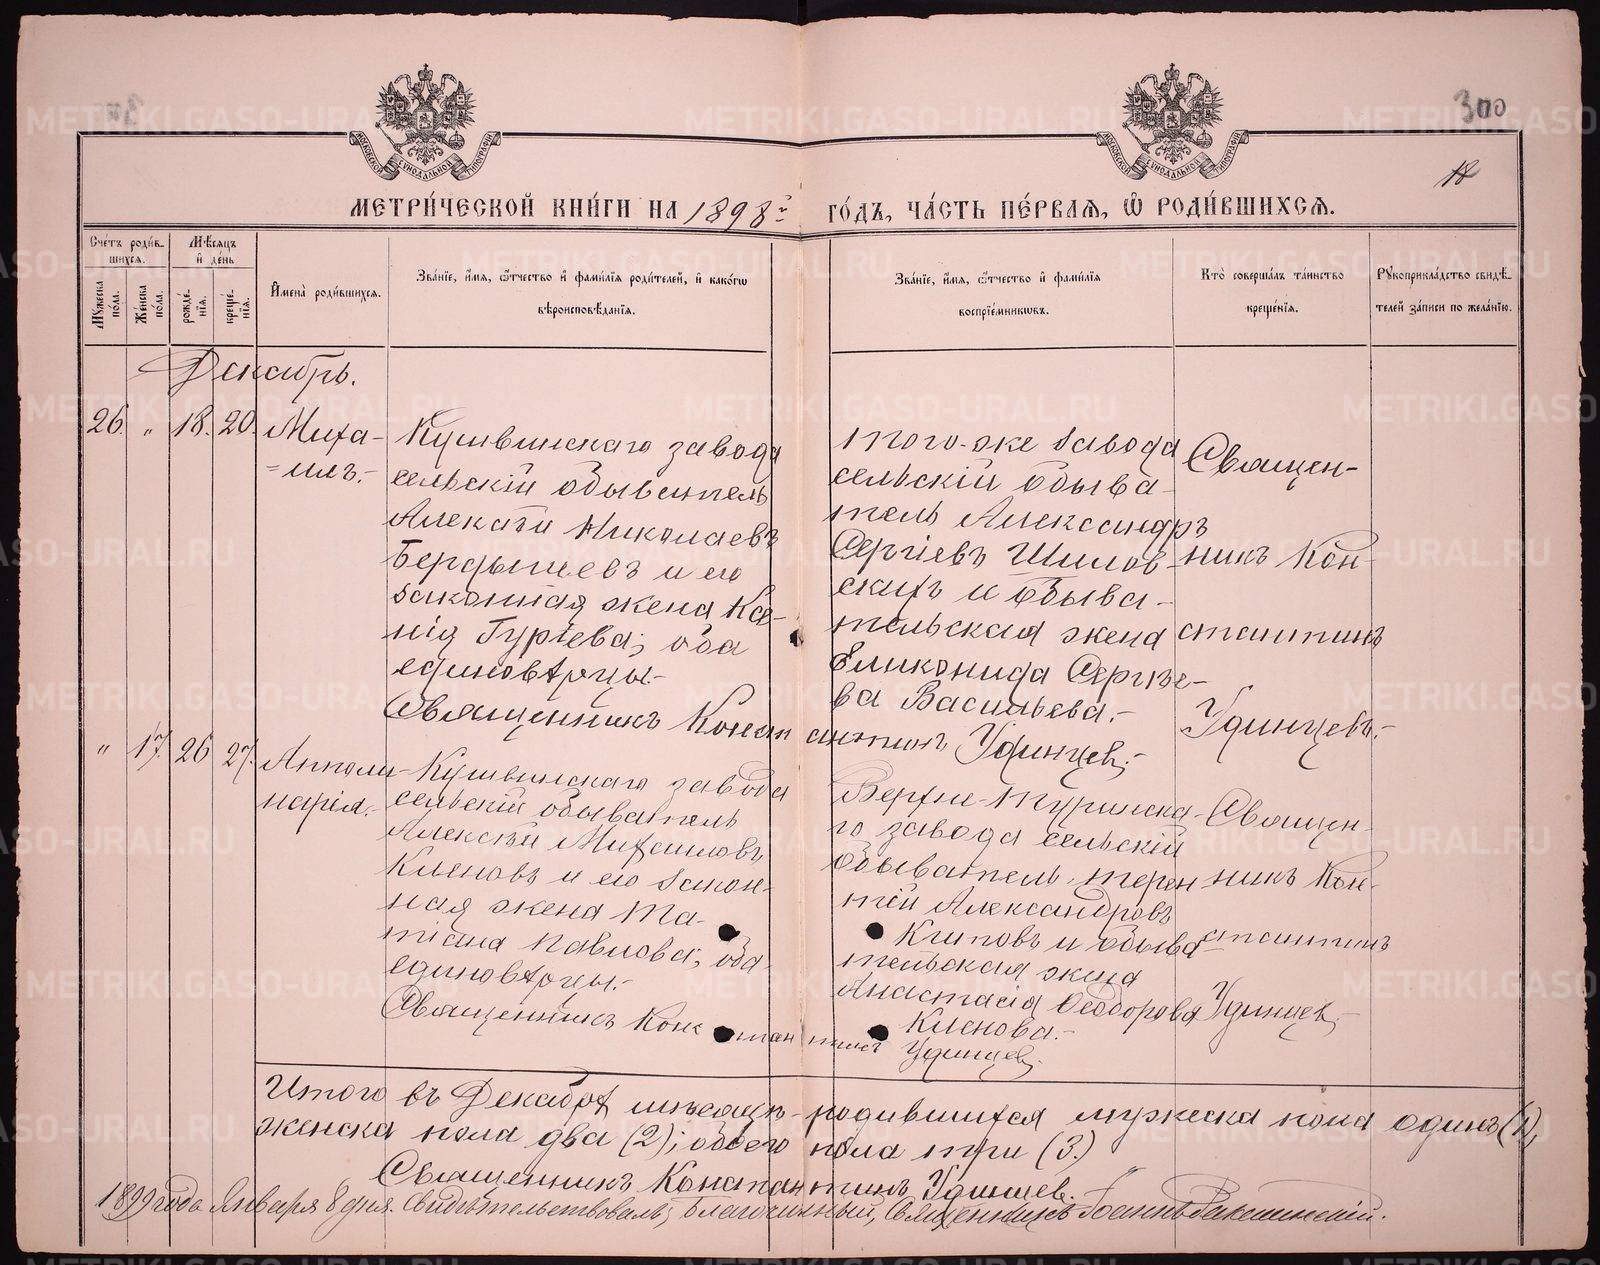 300
18
МЕТРИ́ЧЕСКОЙ КНИ́ГИ НА 1898й ГО́ДЪ, ЧА́СТЬ ПЕ́РВАЯ, Ѡ РОДИ́ВШИХСЯ.
Сче́тъ роди́в-
шихся.
Мѣ́сяцъ
и де́нь
Му́жеска по́ла.
Же́нска по́ла.
рожде́-
нїя.
креще́-
нїя.
И҆мена̀ роди́вшихся.
Зва́нїе, и҆́мя, ѻ҆́тчество и҆ фами́лїя роди́телей, и҆ како́гѡ
вѣроисповѣ́данїя.
Зва́нїе, и҆́мя, ѻ҆́тчество и҆ фами́лїя
воспрїе́мникѡвъ.
Кто̀ соверша́лъ та́инство
креще́нїя.
Рꙋкоприкла́дство свидѣ́-
телей за́писи по жела́нїю.
Декабрь.
26. „ 18. 20. Миха-
=илъ.-
Кушвинскаго завода
сельскій обыватель
Алексѣй Николаевъ
Бердышевъ и его
законная жена Ксе-
нія Гуріева; оба
единовѣрцы.-
Священникъ Константинъ Удинцевъ.-
того-же завода
сельскій обыва-
тель Александръ
Сергіевъ Шилов-
скихъ и обыва-
тельская жена
Еликонида Сергѣе-
ва Васильева.-
Священ-
никъ Кон-
стантинъ
Удинцевъ.-
„ 17. 26 27. Апполи-
нарія.-
Кушвинскаго завода
сельскій обыватель
Алексѣй Михаиловъ
Кленовъ и его закон-
ная жена Та-
тіана Павлова; оба
единовѣрцы.-
Священникъ Константинъ Удинцевъ.
Верхне-Туринска-
го завода сельскій
обыватель Терен
тій Александровъ
и обыва-
тельская жена
Анастасія Ѳеодорова
Кленова.-
Священ-
никъ Кон-
стантинъ
Удинцевъ.-
Итого въ Декабрѣ мѣсяцѣ родившихся мужеска пола одинъ (1),
женска пола два (2); обоего пола три (3.)
Священникъ Константинъ Удинцевъ.
1899 года Января 8 дня. Свидѣтельствовалъ; Благочинный, Священникъ Іоаннъ
МОСКОВСКОЙ СѴНОДАЛЬНОЙ ТИПОГРАФІИ
МОСКОВСКОЙ СѴНОДАЛЬНОЙ ТИПОГРАФІИ
METRIKI.GASO-URAL.RU